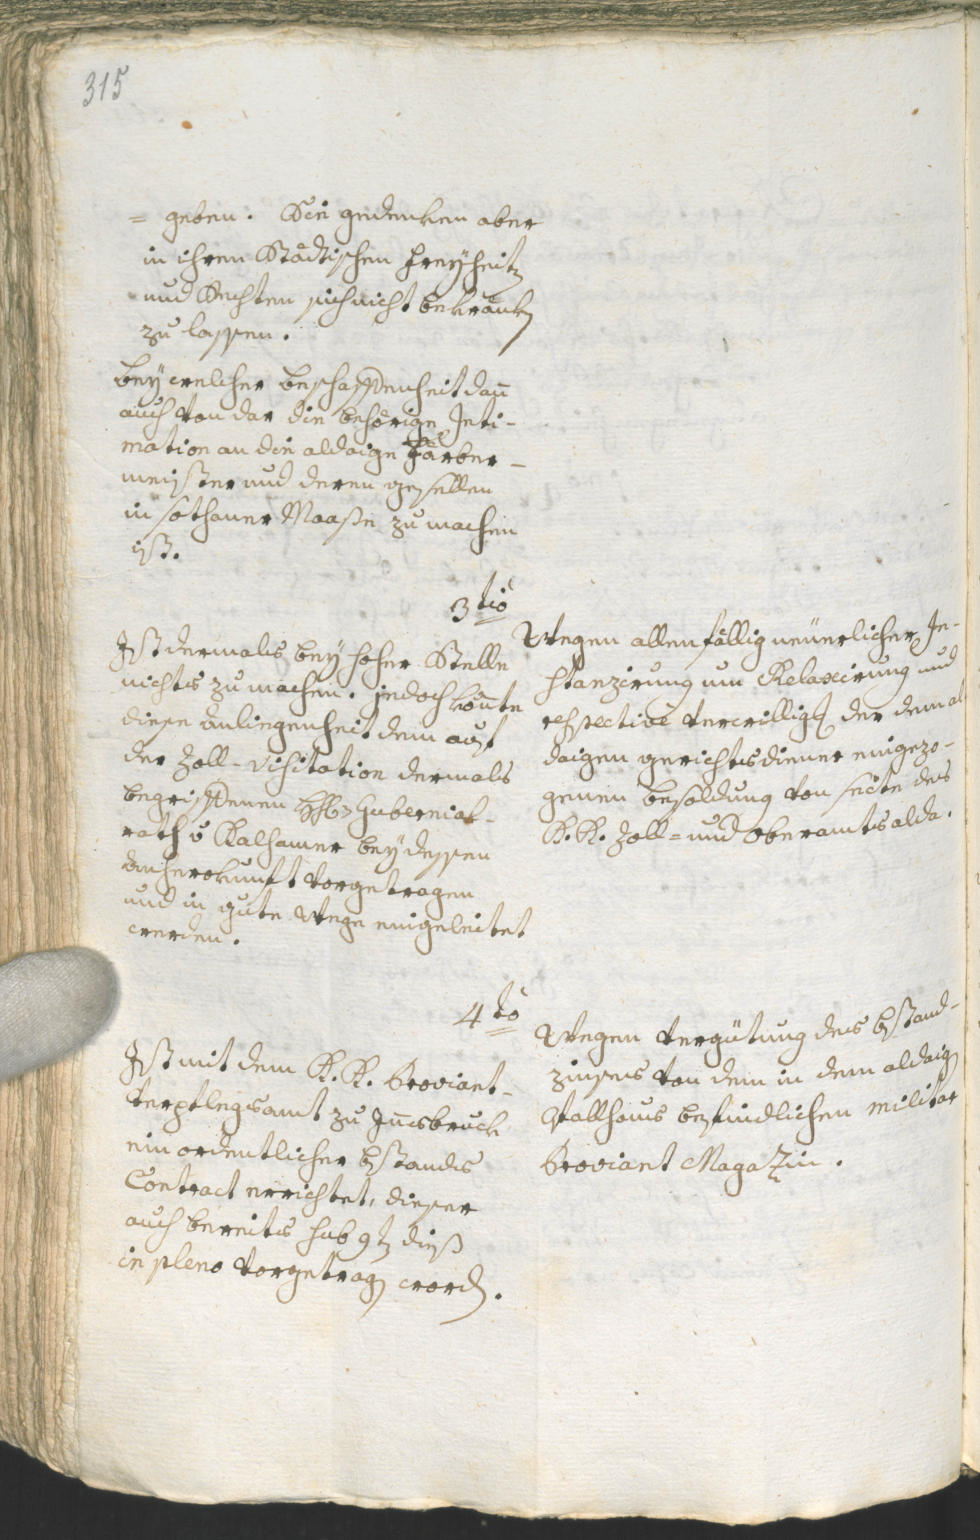 315
= geben. Sie gedenken aber
in ihren Städtischen Freyheitẽ
und Rechten sich nicht bekränkẽ
zu lassen.
bey welcher beschaffenheit dañ
auch von dar die behörige Inti-
mation an die aldaige Färber-
meister und deren gesellen
in sothaner Maaße zu machen
ist.
3tiò
Ist dermals bey hoher Stelle
nichts zu machen. jedoch könte
diese Anliegenheit dem auf
der Zoll-Visitation dermals
begriffenen Gubernial-
rath v Kalhamer bey dessen
Anherokunft vorgetragen
und in gute Wege eingeleitet
werden.
Wegen allenfällig neüerlicher In-
stanzirung um Relaxirung und
respective verwilligg der dem al-
daigen gerichtsdiener eingezo-
genen besoldung von seite des
K.K. Zoll= und Oberamts alda.
4tò
Ist mit dem K.K. Proviant-
verpflegsamt zu Inñsbruck
ein ordentlicher bstands
Contract errichtet, dieser
auch bereits sub 9tẽ dieß
in pleno vorgetragẽ wordẽ.
Wegen vergütung des bstand-
zinses von dem in dem aldaigẽ
Stallhaus befindlichen militar
Proviant Magazin.